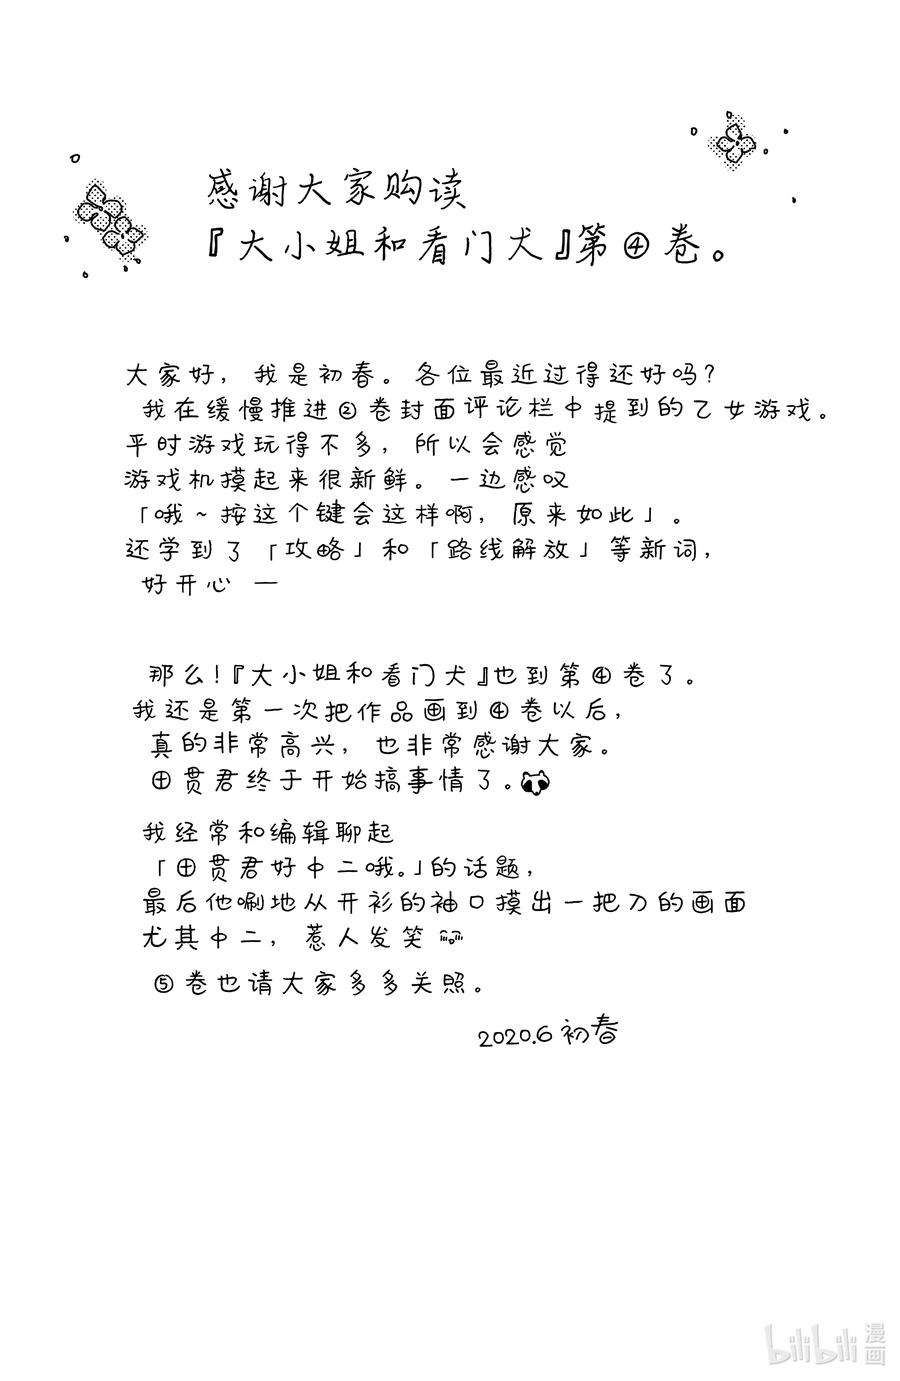 感谢大家购读
『大小姐和看门犬』第④卷。
大家好，我是初春。各位最近过得还好吗？
我在缓慢推进②卷封面评论栏中提到的乙女游戏。
平时游戏玩得不多，所以会感觉
游戏机摸起来很新鲜。一边感叹
「哦～按这个键会这样啊，原来如此」。
还学到了「攻略」和「路线解放」等新词，
好开心 —
那么！『大小姐和看门犬』也到第④卷了。
我还是第一次把作品画到④卷以后，
真的非常高兴，也非常感谢大家。
田贯君终于开始搞事情了。
我经常和编辑聊起
「田贯君好中二哦。」的话题，
最后他唰地从开衫的袖口摸出一把刀的画面
尤其中二，惹人发笑
⑤卷也请大家多多关照。
2020.6 初春
bilibili 漫画